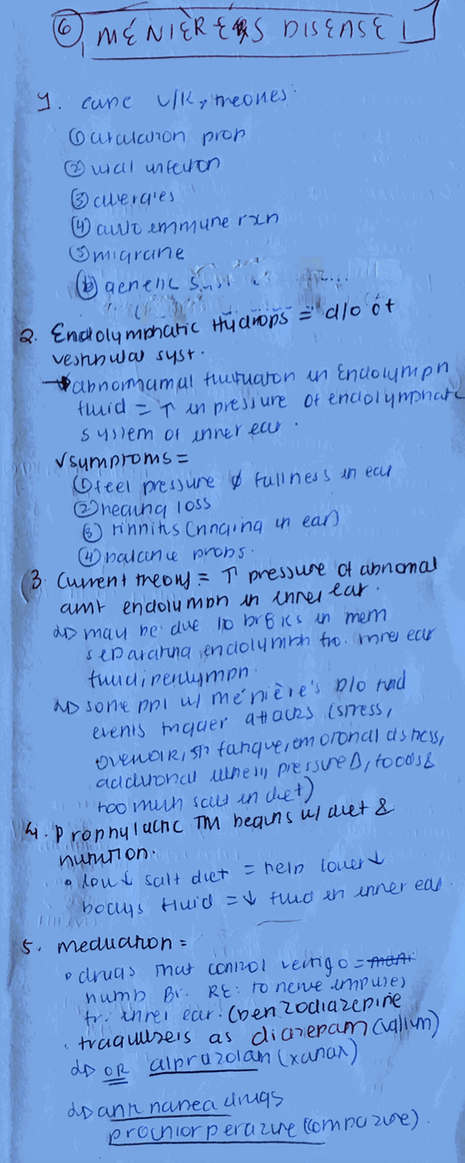 6 MÉNIÈRE'S DISEASE
1. cause U/K, theories:
① circulation prob
② viral infection
③ allergies
④ auto immune rxn
⑤ migraine
⑥ genetic
2. Endolymphatic Hydrops = d/o of
vestibular syst.
→ abnormamal fluctuation in Endolymph
fluid = ↑ in pressure of endolymphatic
system of inner ear.
√ symptoms =
① feel pressure & fullness in ear
② hearing loss
③ tinnitus (ringing in ear)
④ balance probs.
3. Current theory = ↑ pressure of abnormal
amt endolymph in inner ear.
may be due to breaks in mem
separating endolymph fro. inner ear
fluid perilymph.
some ppl w/ ménière's D/o find
events trigger attacks (stress,
overwork, fatigue, emotional distress,
additional illness, pressure Δ, foods &
too much salt in diet)
4. Prophylactic TM begins w/ diet &
nutrition.
• low ↓ salt diet = help lower ↓
bodys fluid = ↓ fluid in inner ear.
5. medication =
• drugs that control vertigo =
numb Br. RE: to nerve impulses
fr. inner ear. (benzodiazepine
. tranquilizers as diazepam (valium)
OR alprazolam (xanax)
anti nausea drugs
prochlorperazine (compazine).